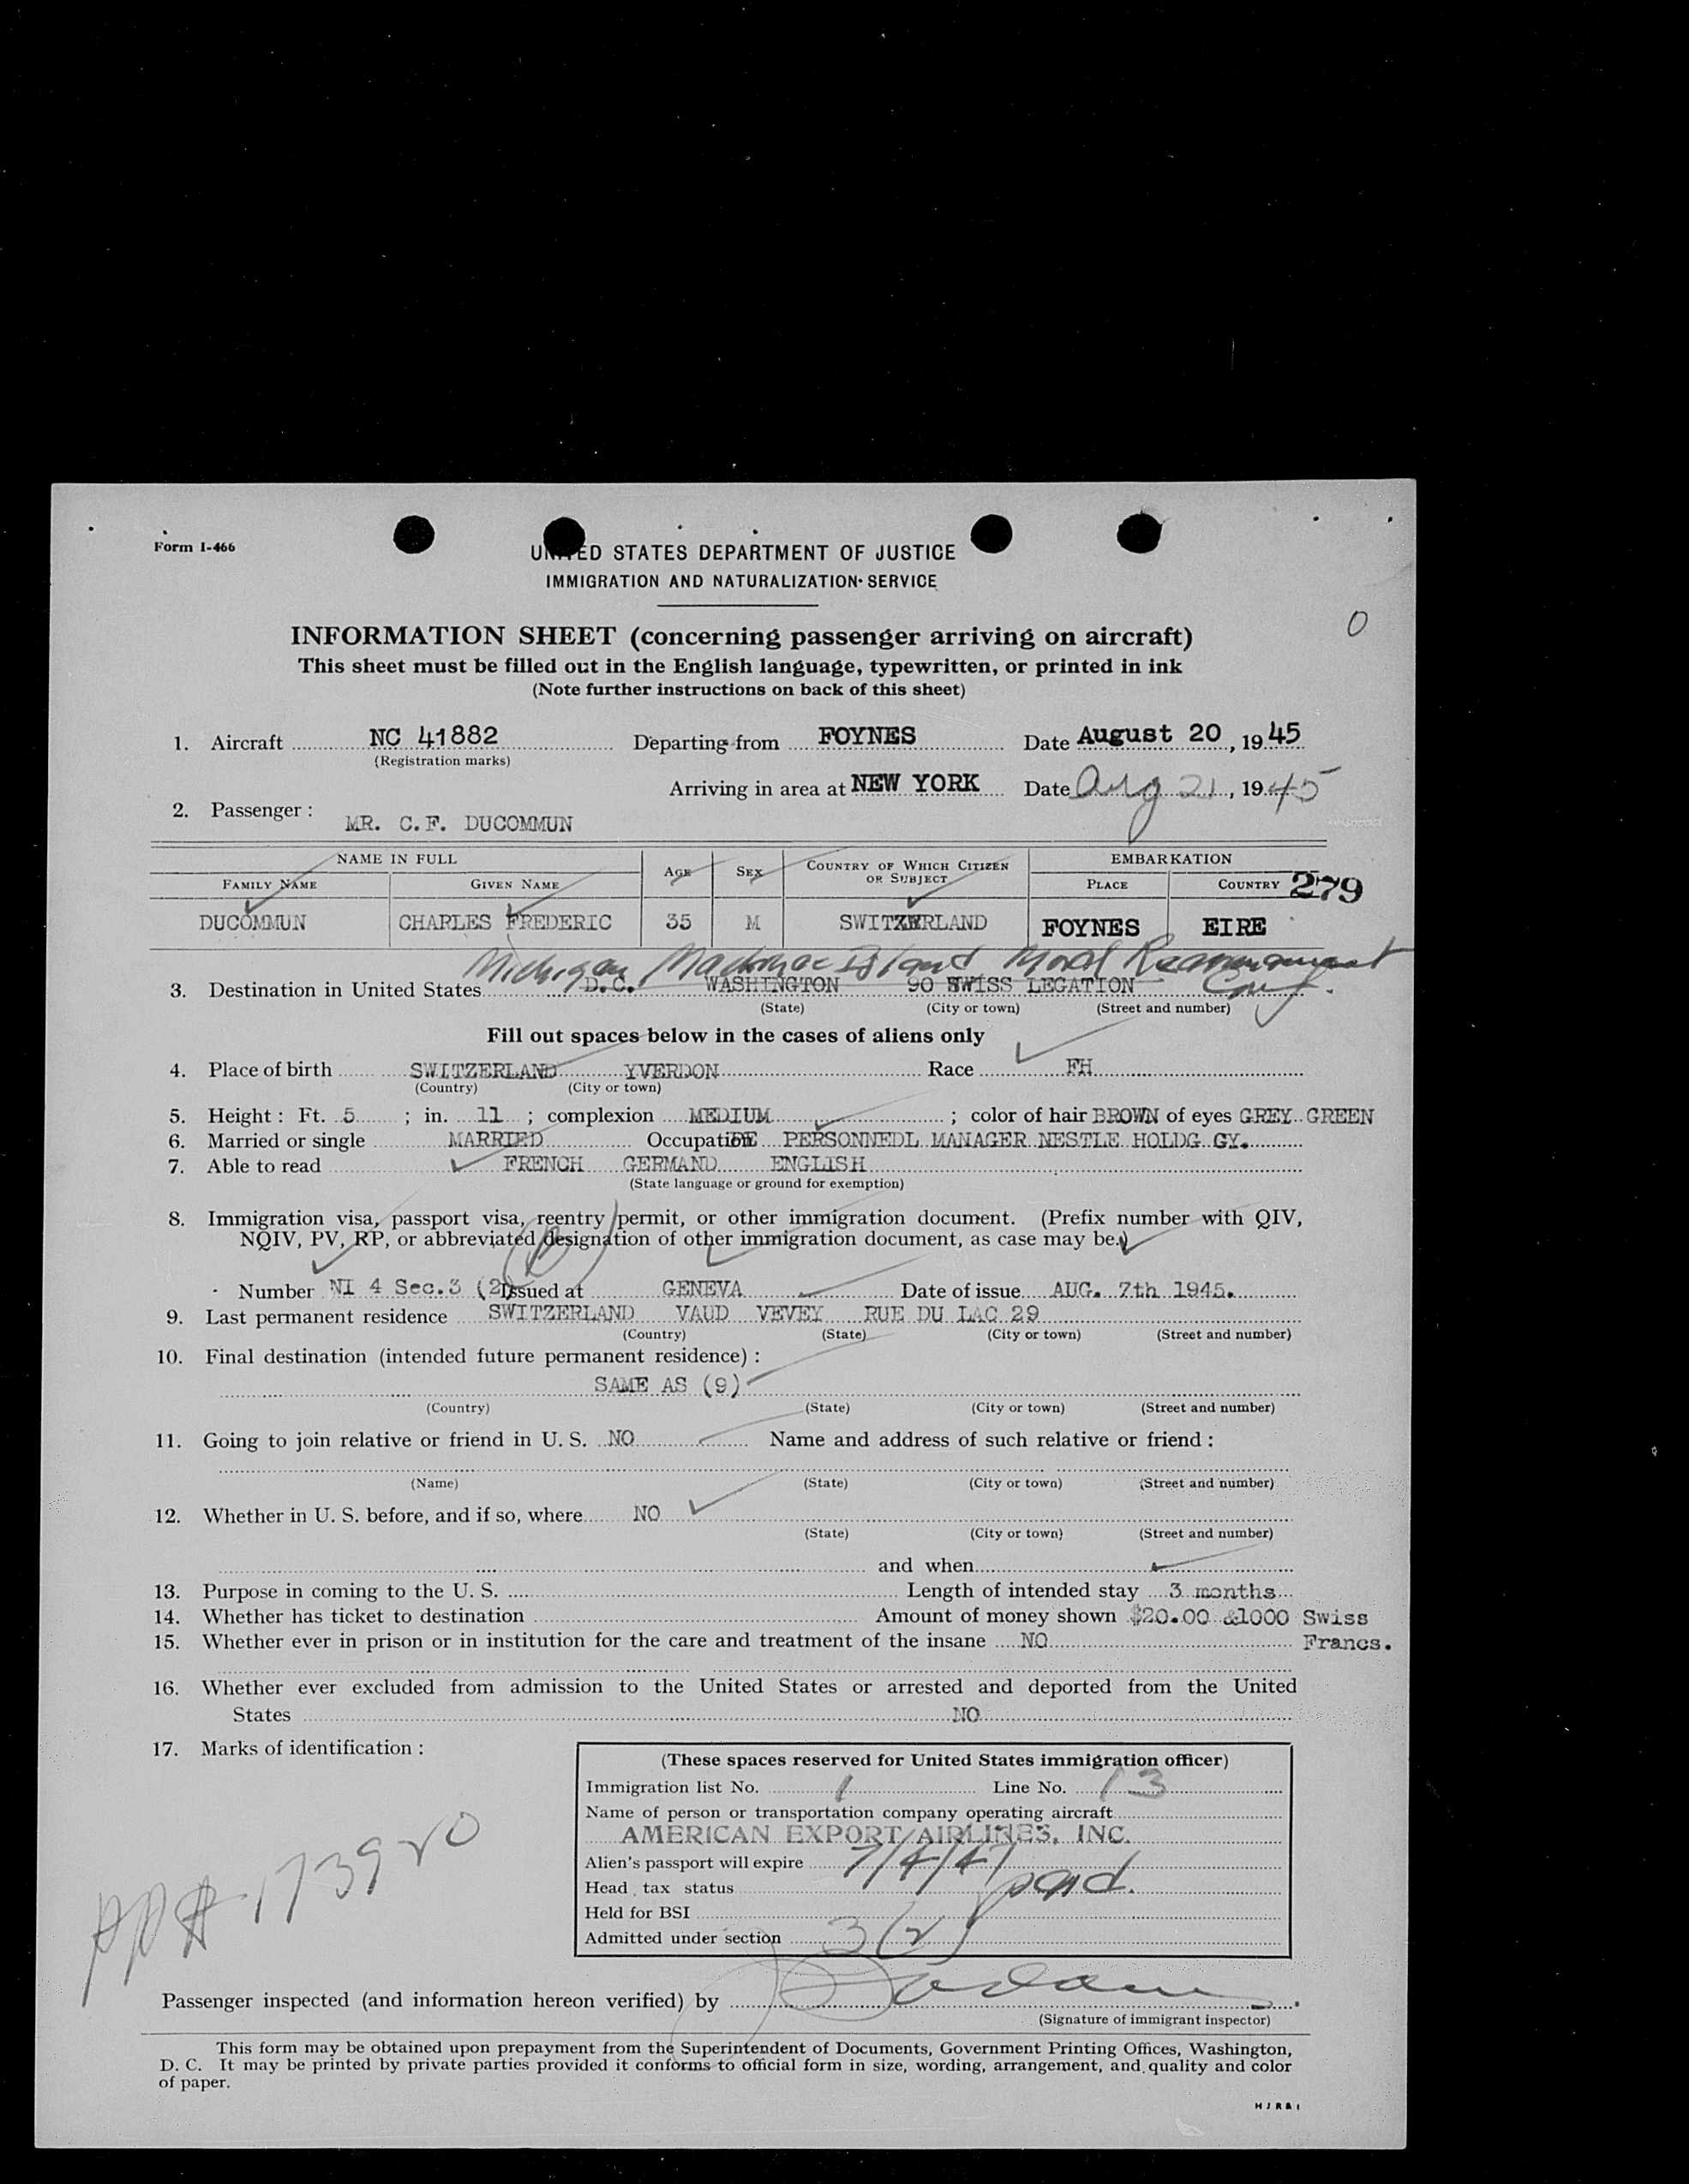 Form I-466
UNITED STATES DEPARTMENT OF JUSTICE
IMMIGRATION AND NATURALIZATION SERVICE
0
INFORMATION SHEET (concerning passenger arriving on aircraft)
This sheet must be filled out in the English language, typewritten, or printed in ink
(Note further instructions on back of this sheet)
1. Aircraft NC 41882 Departing from FOYNES Date August 20, 1945
(Registration marks)
Arriving in area at NEW YORK Date Aug 21, 1945
2. Passenger :
MR. C.F. DUCOMMUN
NAME IN FULL AGE SEX COUNTRY OF WHICH CITIZEN OR SUBJECT EMBARKATION
FAMILY NAME GIVEN NAME PLACE COUNTRY 279
DUCOMMUN CHARLES FREDERIC 35 M SWITZERLAND FOYNES EIRE
Michigan Mackinac Island Moral Rearmament
3. Destination in United States D.C. WASHINGTON 90 SWISS LEGATION Conf.
(State) (City or town) (Street and number)
Fill out spaces below in the cases of aliens only
4. Place of birth SWITZERLAND YVERDON Race FH
(Country) (City or town)
5. Height : Ft. 5 ; in. 11 ; complexion MEDIUM ; color of hair BROWN of eyes GREY GREEN
6. Married or single MARRIED Occupation PERSONNEDL MANAGER NESTLE HOLDG CY.
7. Able to read FRENCH GERMAND ENGLISH
(State language or ground for exemption)
8. Immigration visa, passport visa, reentry permit, or other immigration document. (Prefix number with QIV,
NQIV, PV, RP, or abbreviated designation of other immigration document, as case may be.)
Number NI 4 Sec.3 (2) Issued at GENEVA Date of issue AUG. 7th 1945.
9. Last permanent residence SWITZERLAND VAUD VEVEY RUE DU LAC 29
(Country) (State) (City or town) (Street and number)
10. Final destination (intended future permanent residence) :
SAME AS (9)
(Country) (State) (City or town) (Street and number)
11. Going to join relative or friend in U. S. NO Name and address of such relative or friend :
(Name) (State) (City or town) (Street and number)
12. Whether in U. S. before, and if so, where NO
(State) (City or town) (Street and number)
and when
13. Purpose in coming to the U. S. Length of intended stay 3 months
14. Whether has ticket to destination Amount of money shown $20.00 &1000 Swiss
15. Whether ever in prison or in institution for the care and treatment of the insane NO Francs.
16. Whether ever excluded from admission to the United States or arrested and deported from the United
States NO
17. Marks of identification :
(These spaces reserved for United States immigration officer)
Immigration list No. 1 Line No. 13
Name of person or transportation company operating aircraft
AMERICAN EXPORT AIRLINES, INC.
Alien's passport will expire 7/4/47
Head tax status pard.
Held for BSI
Admitted under section 3(2)
PP# 173920
Passenger inspected (and information hereon verified) by
(Signature of immigrant inspector)
This form may be obtained upon prepayment from the Superintendent of Documents, Government Printing Offices, Washington,
D. C. It may be printed by private parties provided it conforms to official form in size, wording, arrangement, and quality and color
of paper.
HJR&I